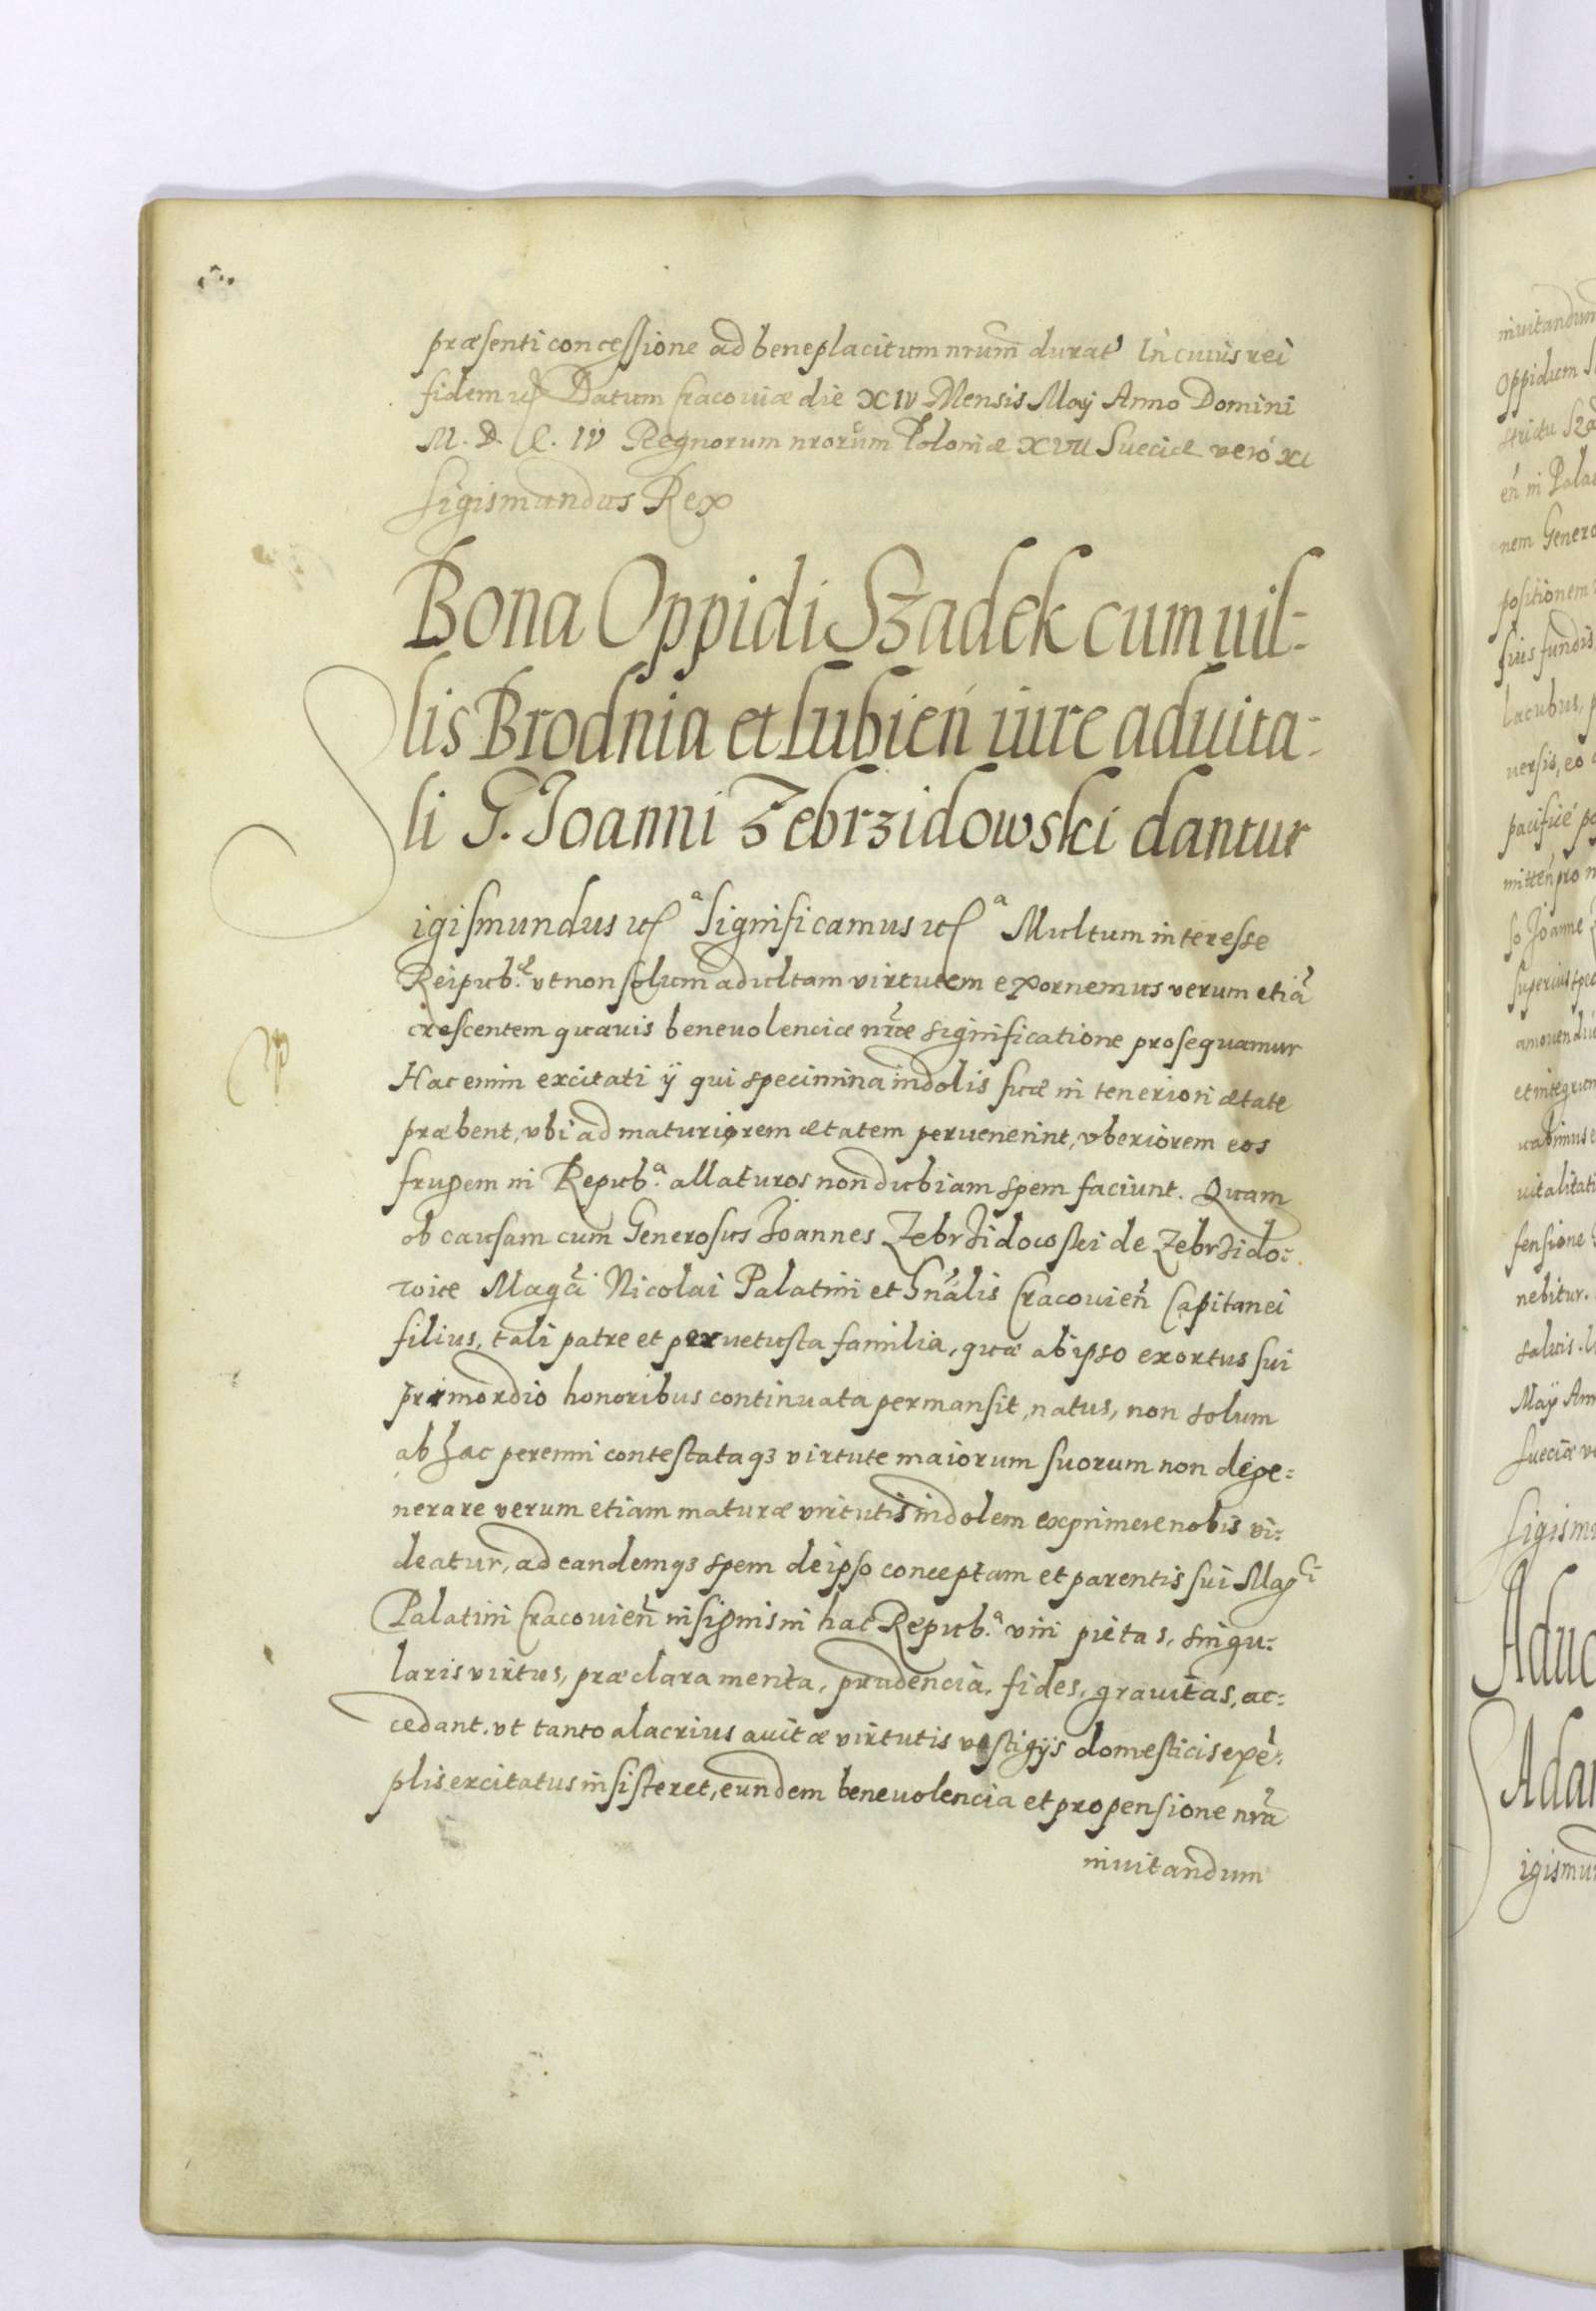 præsenti concessione ad beneplacitum nrum̄ durat' In cuius rei
fidem etc Datum Cracouiæ die XIV Mensis Maÿ Anno Domini
M. D. C. IV Regnorum nrorum Poloniæ XVII Sueciæ verò XI
Sigismundus Rex
Bona Oppidi Szadek cum uil-
lis Brodnia et Lubień iure aduita-
li G. Joanni Zebrzidowski dantur
Sigismundus etc.ª Significamus etc.ª Multum interesse
Reipub.æ vt non solum adultam virtutem exornemus verum etiā
crescentem quauis beneuolenciæ nræ significatione prosequamur
Hac enim excitati ÿ qui specimina indolis suæ in teneriori ætate
præbent, vbi ad maturiorem ætatem peruenerint, vberiorem eos
frugem in Repub.ª allaturos non dubiam spem faciunt. Quam
ob causam cum Generosus Joannes Zebrzidowski de Zebrzido-
wice Magci Nicolai Palatini et Gnālis Cracouień Capitanei
filius, tali patre et peruetusta familia, quæ ab ipso exortus sui
primordio honoribus continuata permansit, natus, non solum
ab hac perenni contestataq3 virtute maiorum suorum non dege-
nerare verum etiam maturæ virtutis indolem exprimere nobis vi-
deatur, ad eandemq3 spem de ipso conceptam et parentis sui Magci
Palatini Cracouień insignis in hac Repub.ª viri pietas, singu-
laris virtus, præclara merita, prudencia, fides, grauitas, ac-
cedant, vt tanto alacrius auitæ virtutis vestigijs domesticis exē-
plis excitatus insisteret, eundem beneuolencia et propensione nrā
inuitandum
inuitandum
Oppidum
en in Palat
nem Genero
positionem
suis fundis
lacubus, p
uersis, eo
pacificè po
mitteń pro n
so Joanne
superius spec
et integrum
uitalitati
fensione
nebitur.
saluis.
Maÿ Ann
Sueciæ ve
Sigismu
Aduc
Adam
igismun